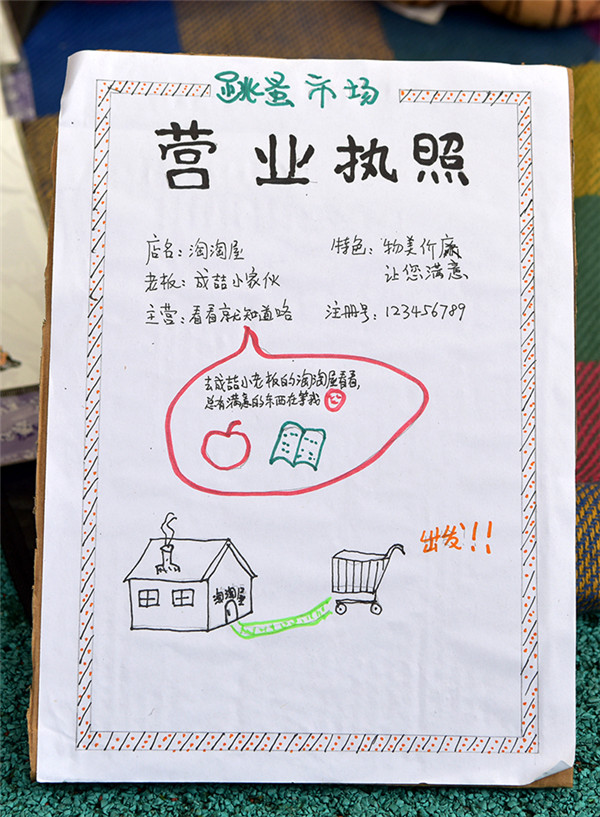 跳蚤市场
营业执照
店名：淘淘屋
特色：物美价廉
让您满意
老板：成喆小家伙
主营：看看就知道咯
注册号：123456789
去成喆小老板的淘淘屋看看，
总有满意的东西在等我
出发！！
淘淘屋